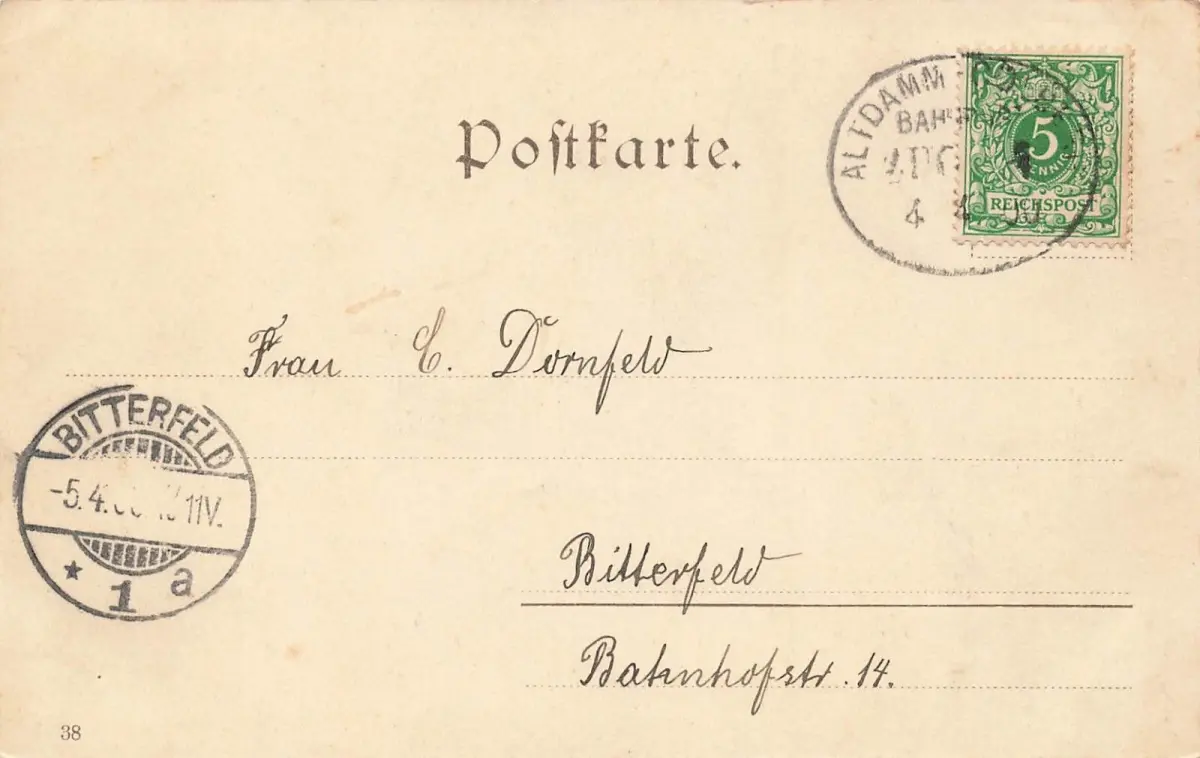 Postkarte.
ALTDAMM
5
PFENNIG
REICHSPOST
4 4
Frau E. Dornfeld
BITTERFELD
-5.4. 11V.
* 1 a
Bitterfeld
Bahnhofstr. 14.
38